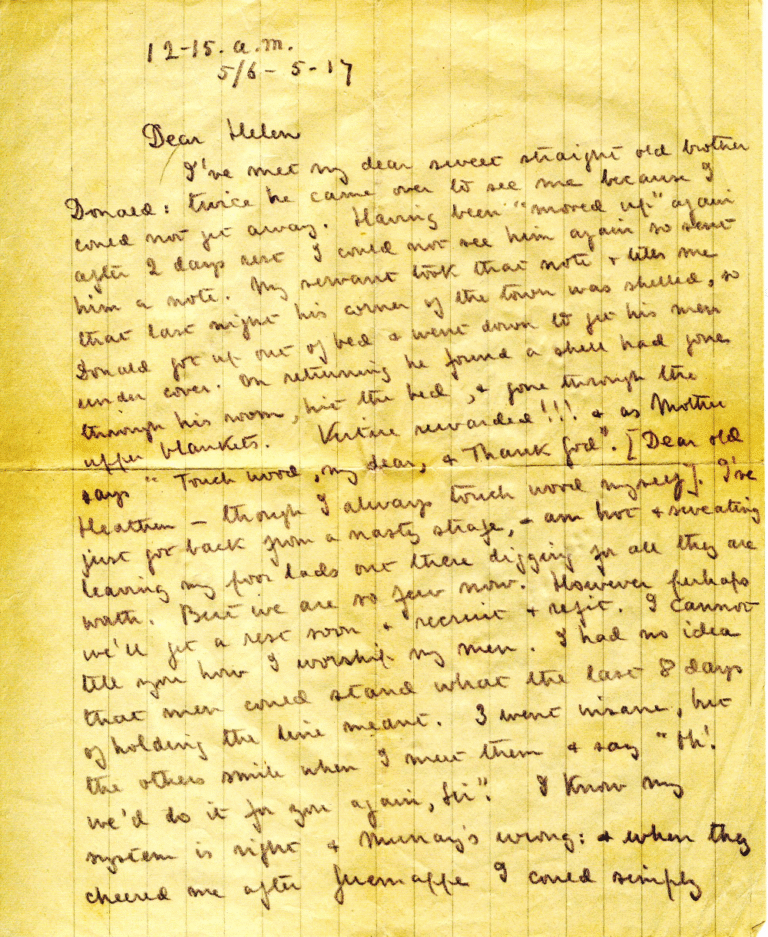 12-15. a.m.
5/6 - 5 - 17
Dear Helen
I've met my dear sweet straight old brother
Donald: twice he came over to see me because I
could not get away. Having been "moved up" again
after 2 days rest I could not see him again so sent
him a note. My servant took that note & tells me
that last night his corner of the town was shelled, so
Donald got up out of bed & went down to get his men
under cover. On returning he found a shell had gone
through his room, hit the bed, & gone through the
upper blankets. Virtue rewarded!!! & as Mother
says "Touch wood, my dear, & Thank God". [Dear old
Heathen - though I always touch wood myself]. I've
just got back from a nasty strafe, - am hot & sweating
leaving my poor lads out there digging for all they are
worth. But we are so few now. However perhaps
we'll get a rest soon & recruit & refit. I cannot
tell you how I worship my men. I had no idea
that men could stand what the last 8 days
of holding the line meant. 3 went insane, but
the others smile when I meet them & say "Oh!
we'd do it for you again, Sir". I know my
system is right & Murray's wrong: & when they
cheered me after I could simply